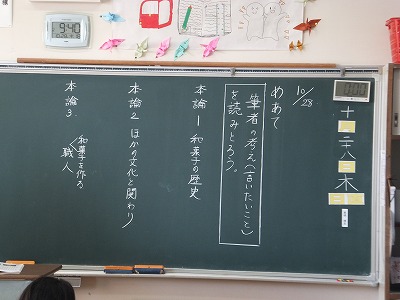 十
二十八
木
10/28
めあて
筆者の考え(言いたいこと)
を読みとろう。
本論1 和菓子の歴史
本論2 ほかの文化と関わり
本論3.
和菓子を作る
職人
9:40